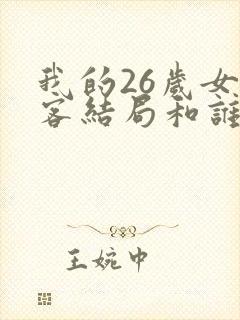 我的26歲女
客結局和誰
王婉中